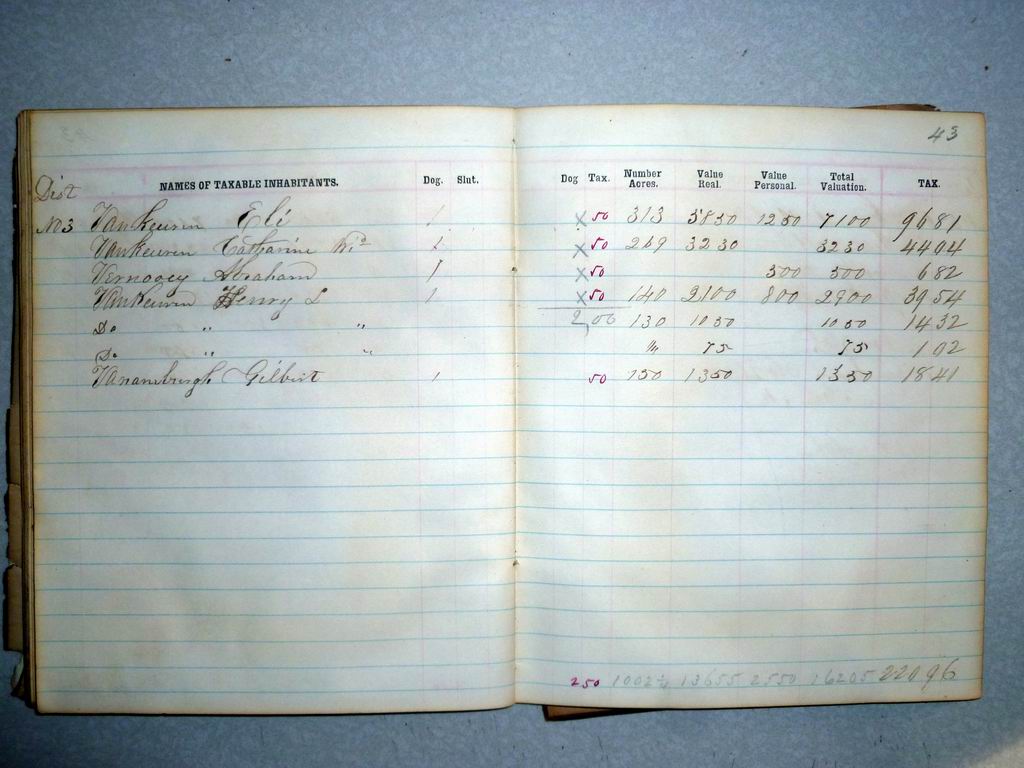 43
Dist
NAMES OF TAXABLE INHABITANTS. Dog. Slut. Dog Tax. Number Acres. Value Real. Value Personal. Total Valuation. TAX.
No 3 VanKeuren Eli 1 X 50 313 5850 1250 7100 96 81
VanKeuren Catharine Wd 1 X 50 269 3230 3230 44 04
Vernooey Abraham 1 X 50 500 500 6 82
VanKeuren Henry L 1 X 50 140 2100 800 2900 39 54
Do " " 2,00 130 1050 1050 14 32
Do " " ½ 75 75 1 02
Vanamburgh Gilbert 1 50 150 1350 1350 18 41
2 50 1002 ½ 13655 2550 16205 220 96